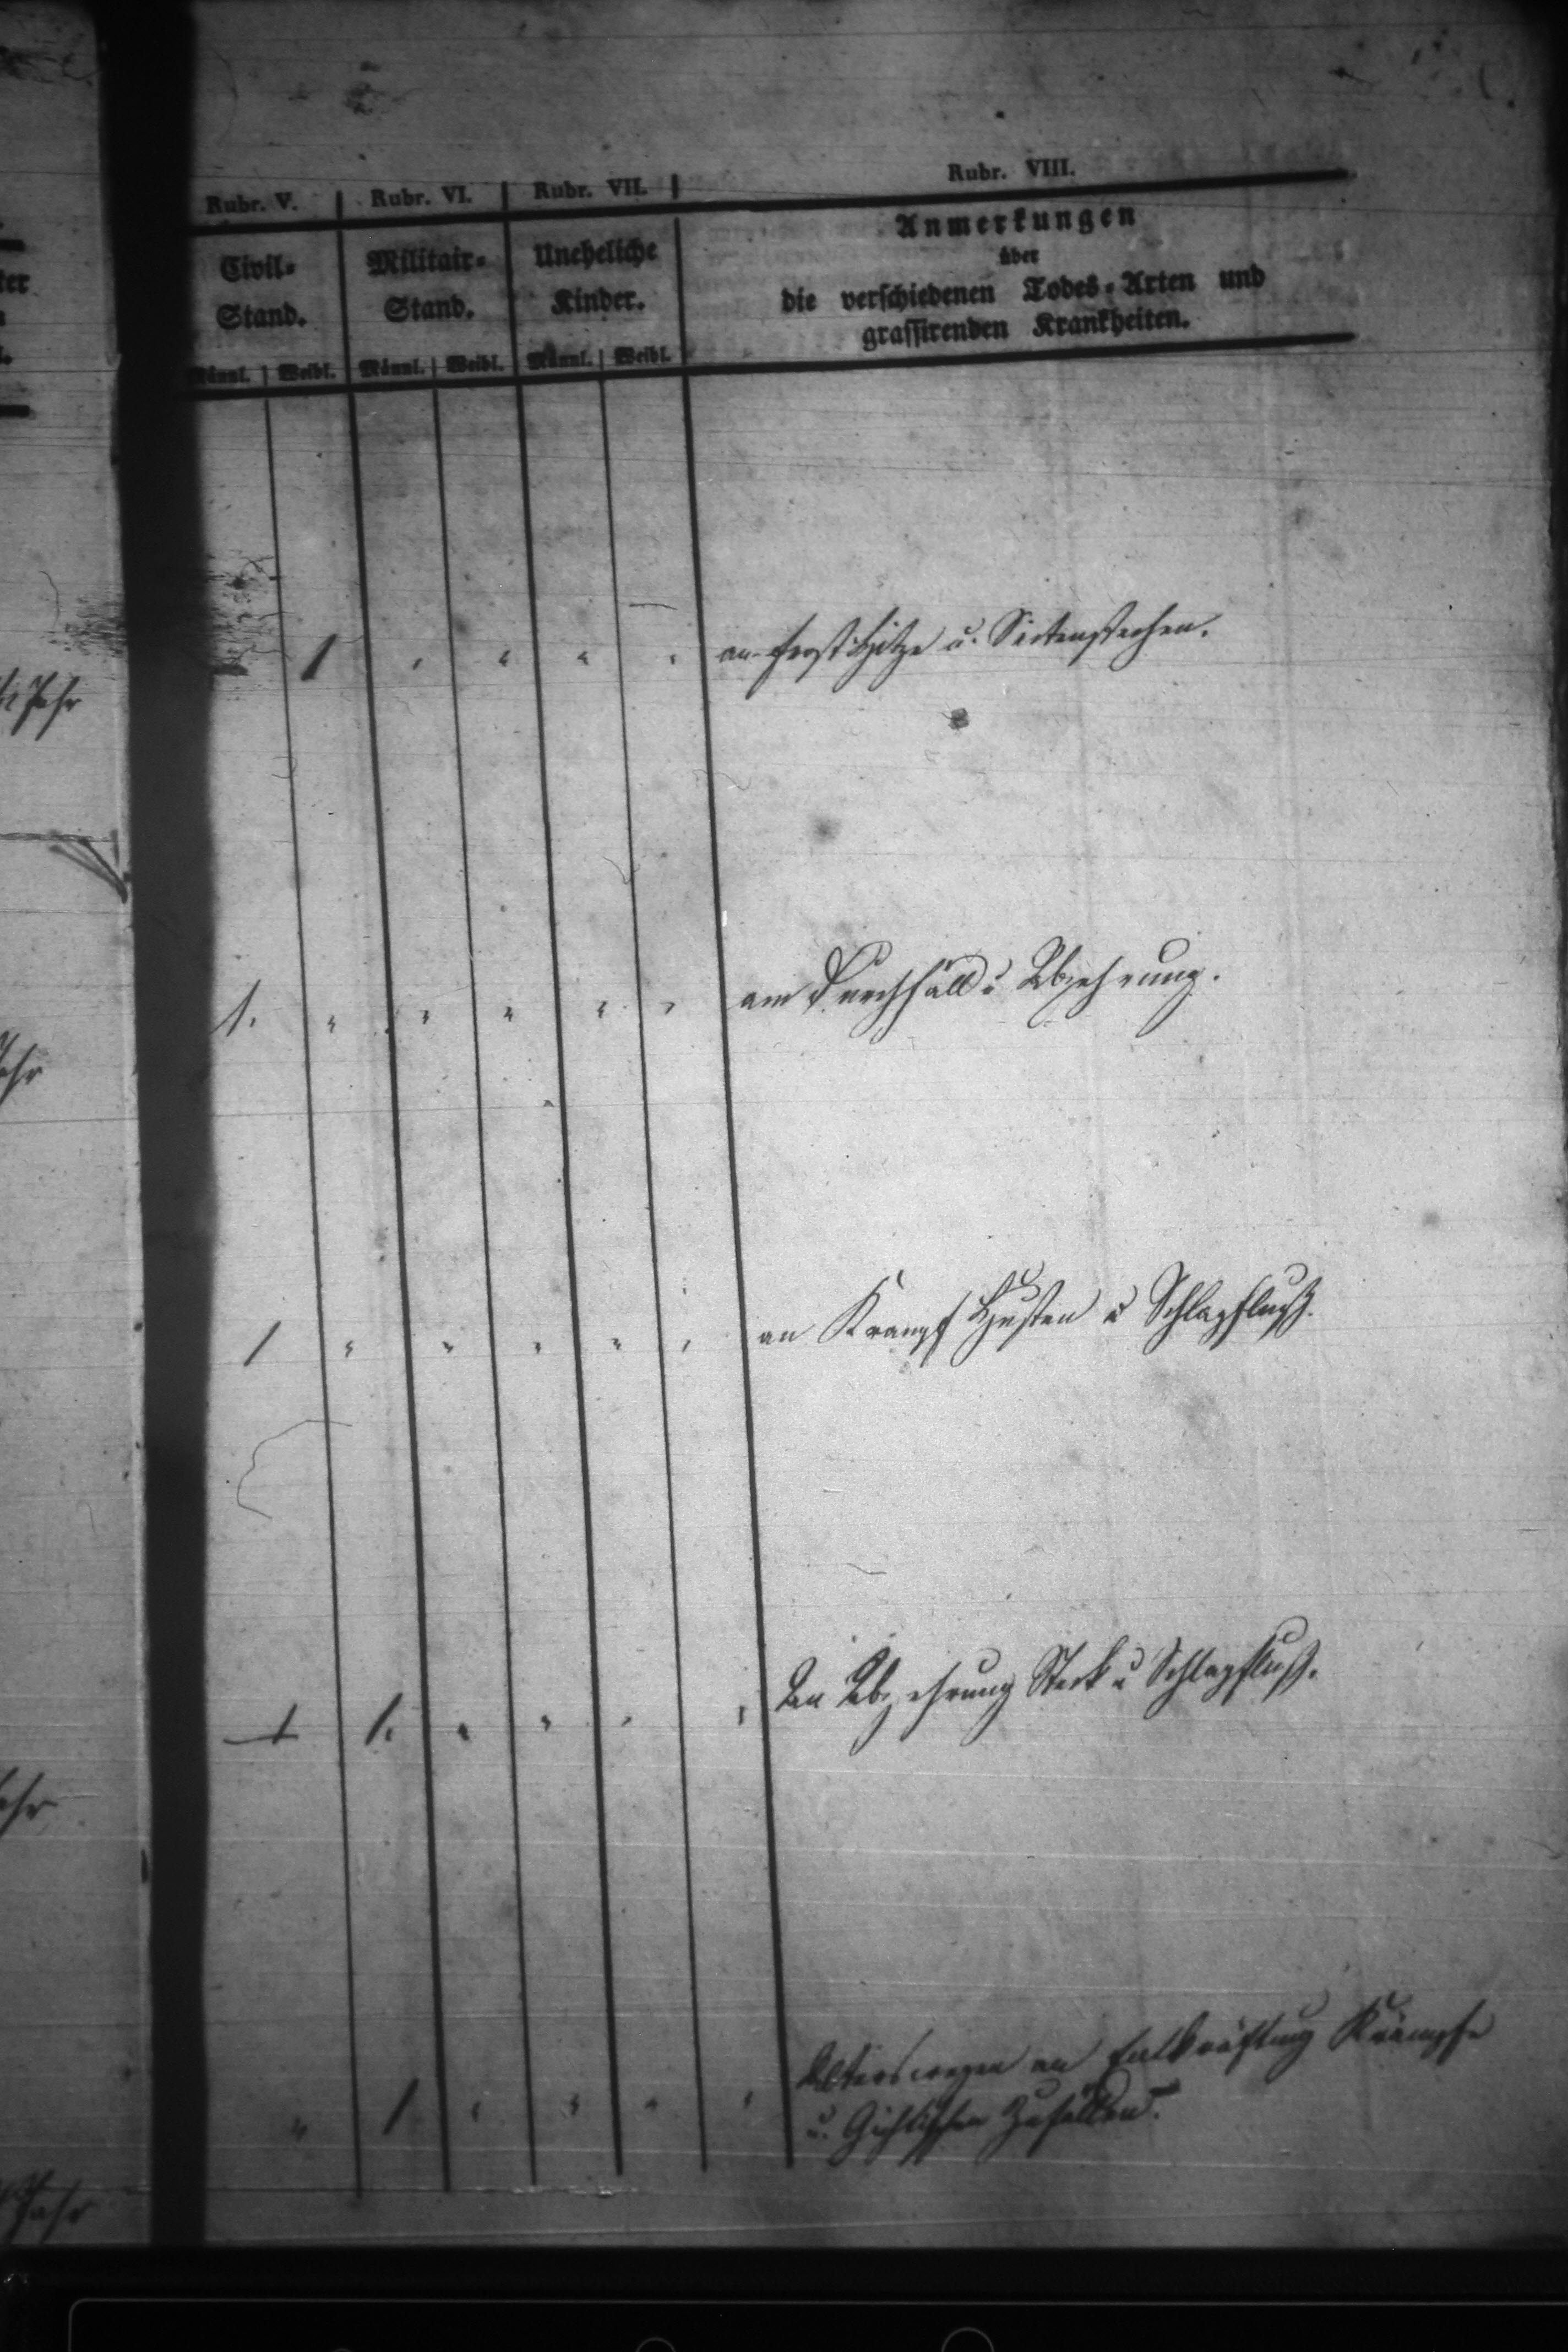 Rubr. V. Rubr. VI. Rubr. VII. Rubr. VIII.
Civil- Stand. Militair- Stand. Uneheliche Kinder. Anmerkungen
über
die verschiedenen Todes-Arten und
grassirenden Krankheiten.
Männl. Weibl. Männl. Weibl. Männl. Weibl.
1 " " " " an Frost Hitze u. Seitenstechen.
Jahr
1. " " " " " am Durchfall u Abzehrung.
1 " " " " " an Krampf Husten u Schlagfluß.
1. " " " " An Abzehrung u Schlagfluß.
" 1 " " " " Alterswegen an Entkräftung Krämpfe
u. Gichtischen Zufällen.
Jahr